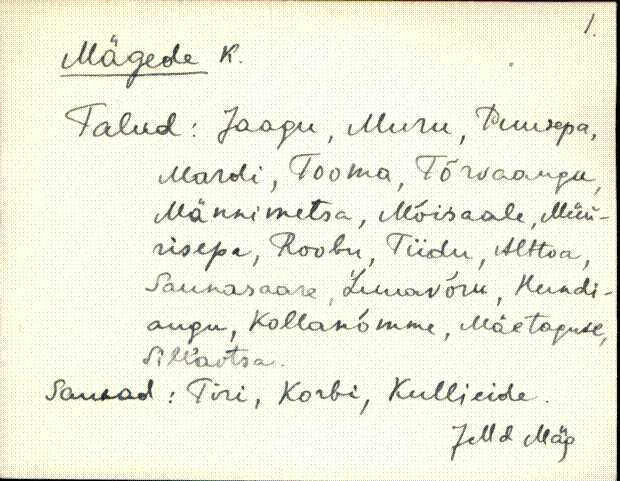 1.
Mägede K.
Talud: Jaagu, Muru, Puusepa,
Mardi, Tooma, Tõrvaaugu,
Männimetsa, Mõisaale, Müü-
risepa, Roobu, Tiidu, Alttoa,
Saunasaare, Linnavõru, Hundi-
augu, Kollanõmme, Mäetaguse,
Sillaotsa.
Saunad: Tiri, Korbi, Kullieide.
JMd Mäg